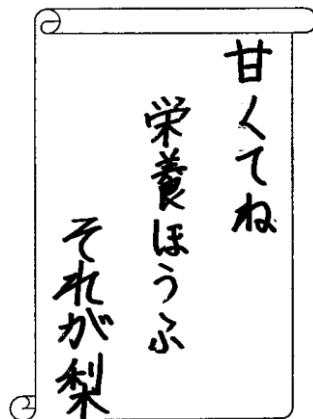 甘くてね
栄養ほうふ
それが梨